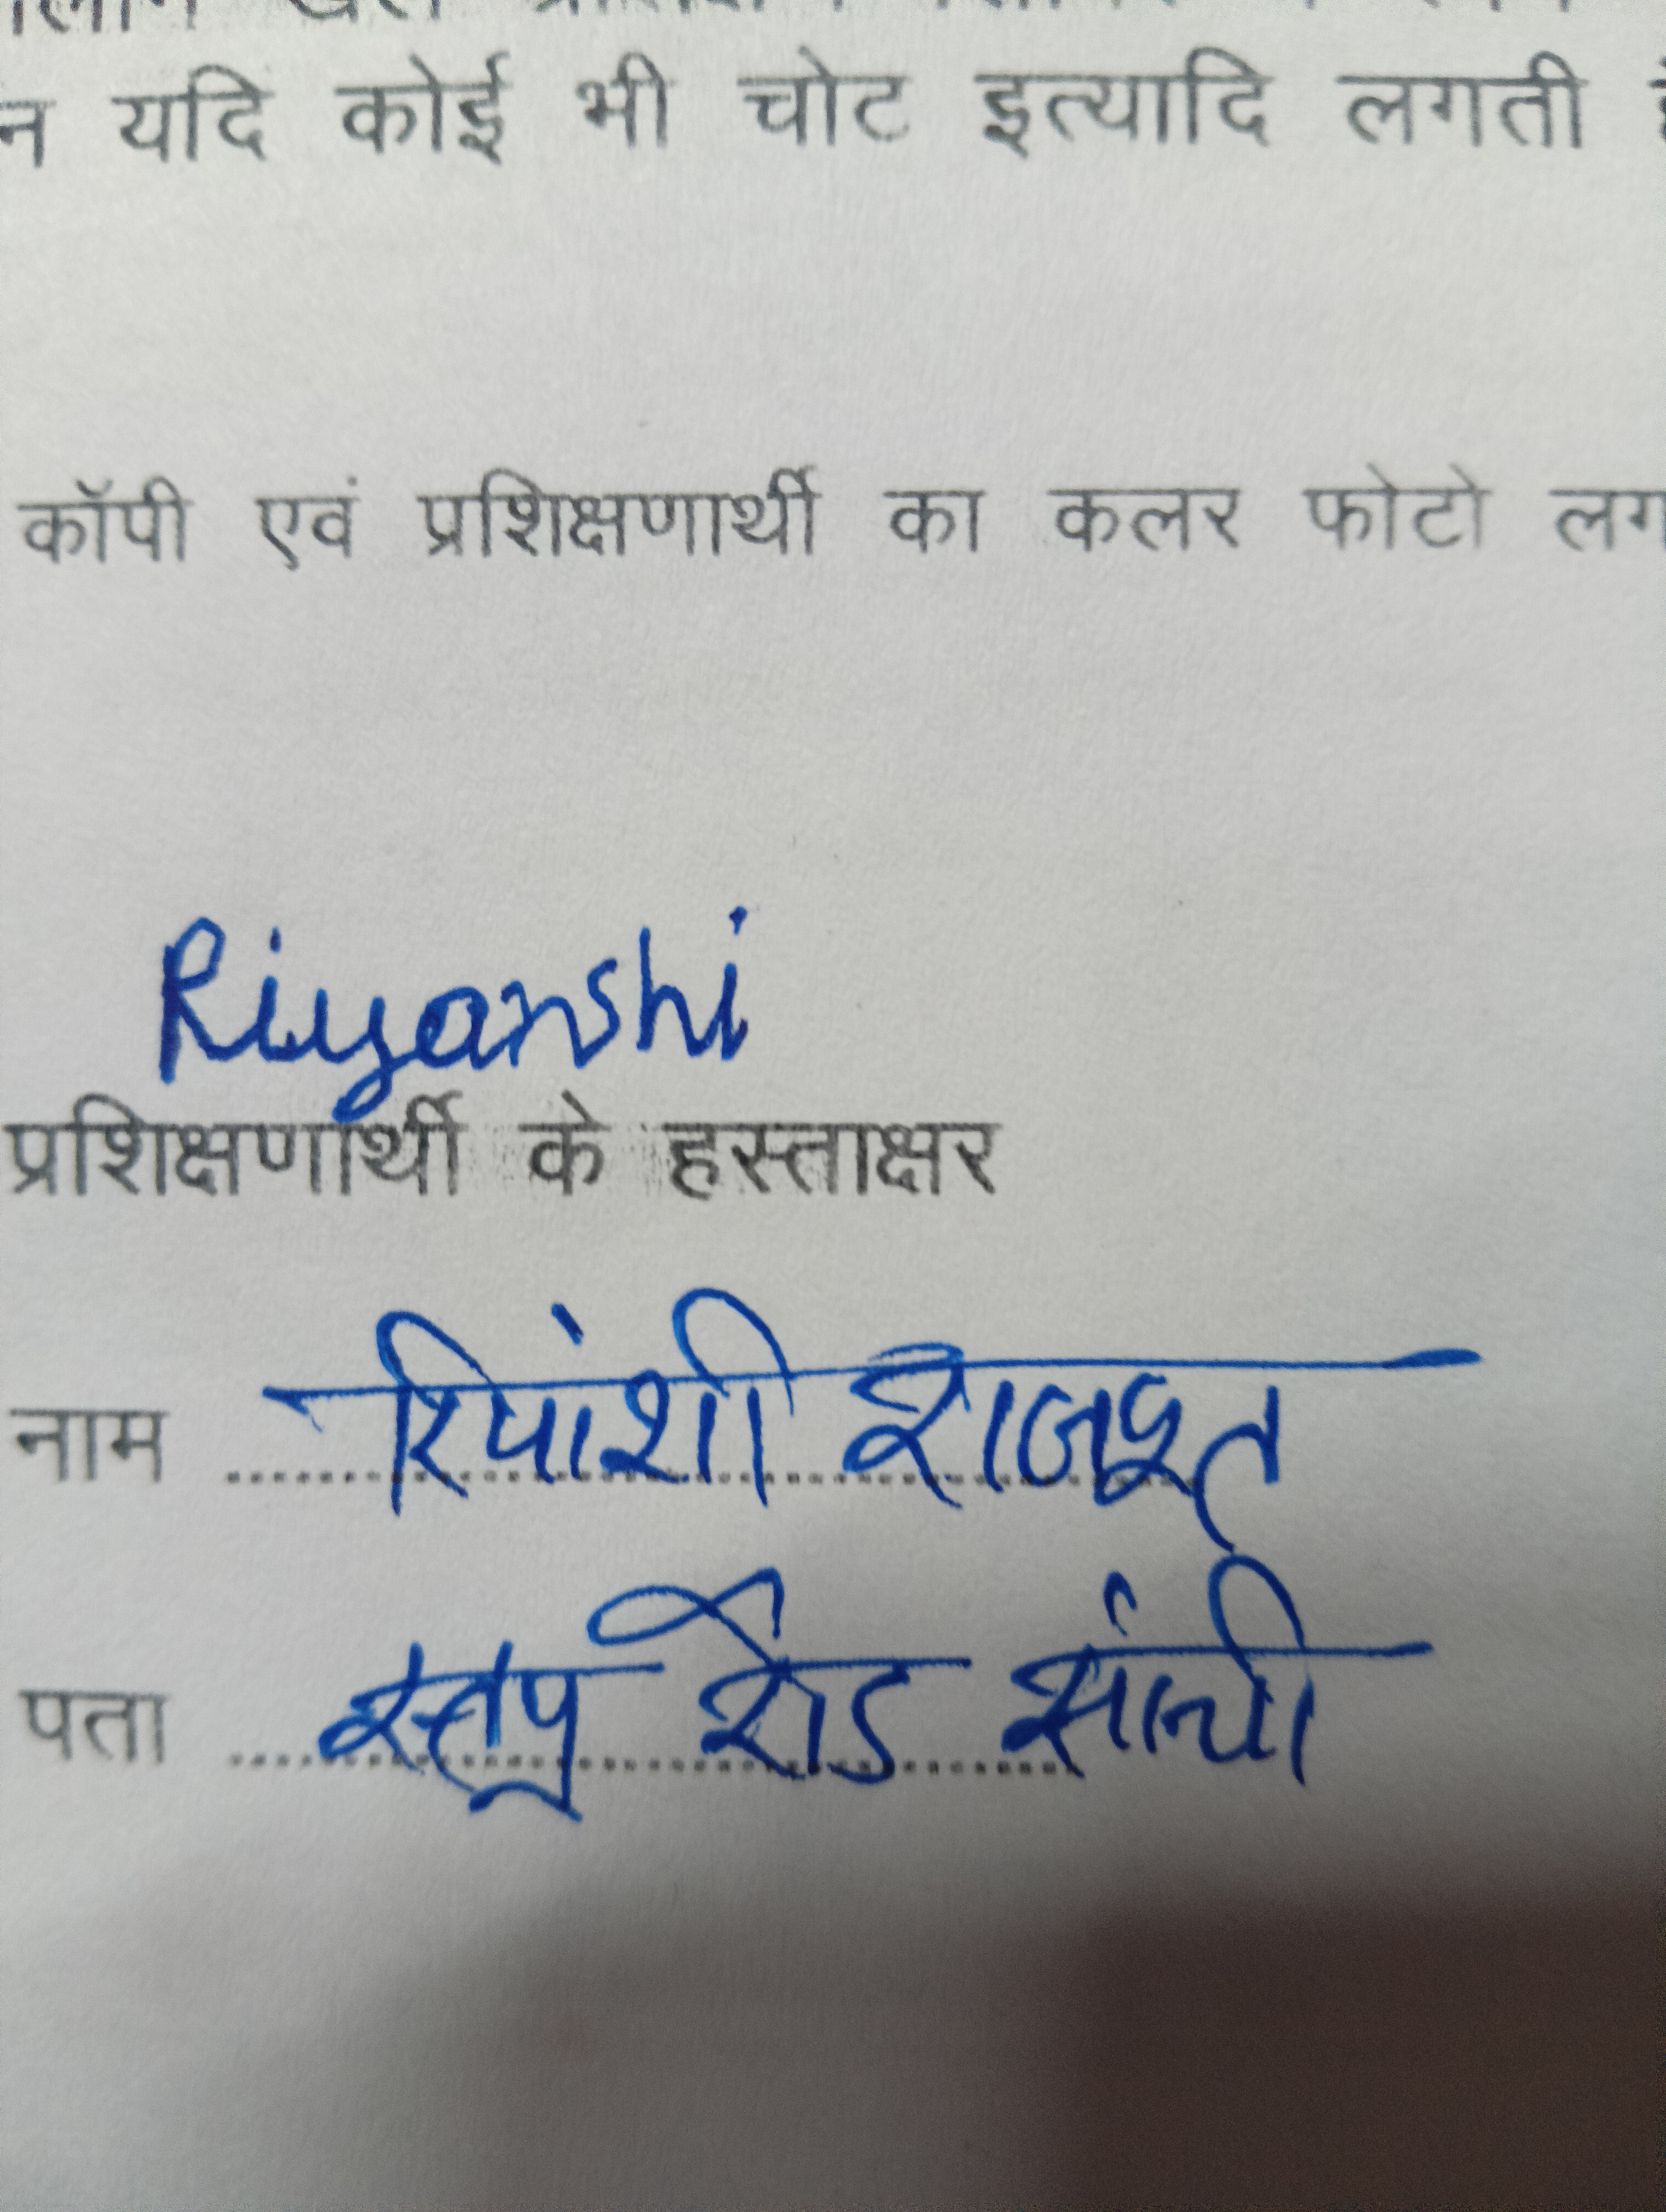 न यदि कोई भी चोट इत्यादि लगती
कॉपी एवं प्रशिक्षणार्थी का कलर फोटो लग
Riyanshi
प्रशिक्षणार्थी के हस्ताक्षर
नाम रियांशी राजपूत
पता स्तूप रोड सांची